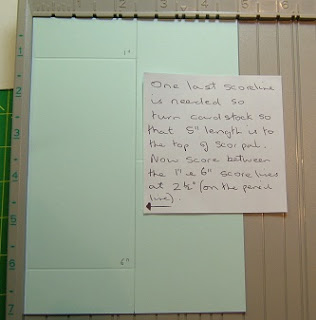 1"
One last scoreline
is needed so
turn cardstock so
that 5" length is to
the top of scorpal.
Now score between
the 1" & 6" score lines
at 2½" (on the pencil
line).
6"